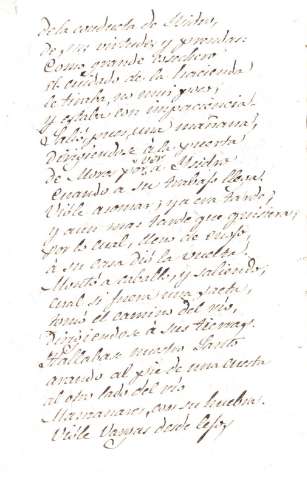 de la conducta de Ysidro,
de sus virtudes y prendas:
Como grande caballero
el cuidado de la hacienda
le tiraba, no muy poco,
y estaba con impaciencia.
Salió, pues, una mañana,
Dirigiendose à la puerta
de Moros por ver si Ysidro
Cuando a su trabajo llega.
Viole asomar; ya era tarde,
y aun mas tarde que quisiera;
por lo cual, lleno de enojo,
à su casa dió la vuelta;
Montó a caballo, y saliendo,
cual si fuera una saeta,
tomó el camino del rio,
Dirigiendose à sus tierras.
Hallabase nuestro Santo
arando al pie de una cuesta
al otro lado del rio
Manzanares, con su huebra.
Viole Vargas desde lejos,